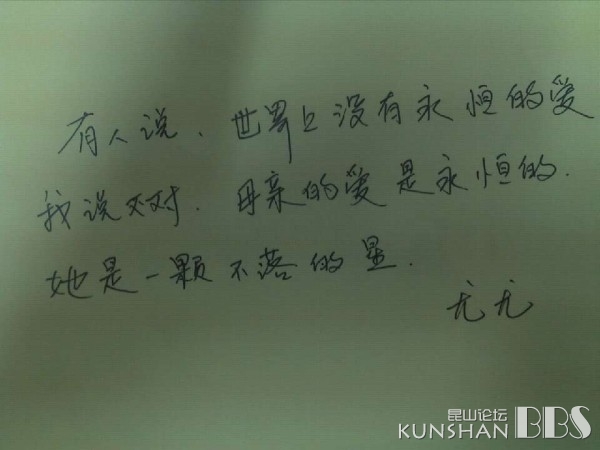 有人说、世界上没有永恒的爱
我说不对．母亲的爱是永恒的．
她是一颗不落的星．
尤尤
昆山论坛
KUNSHAN BBS